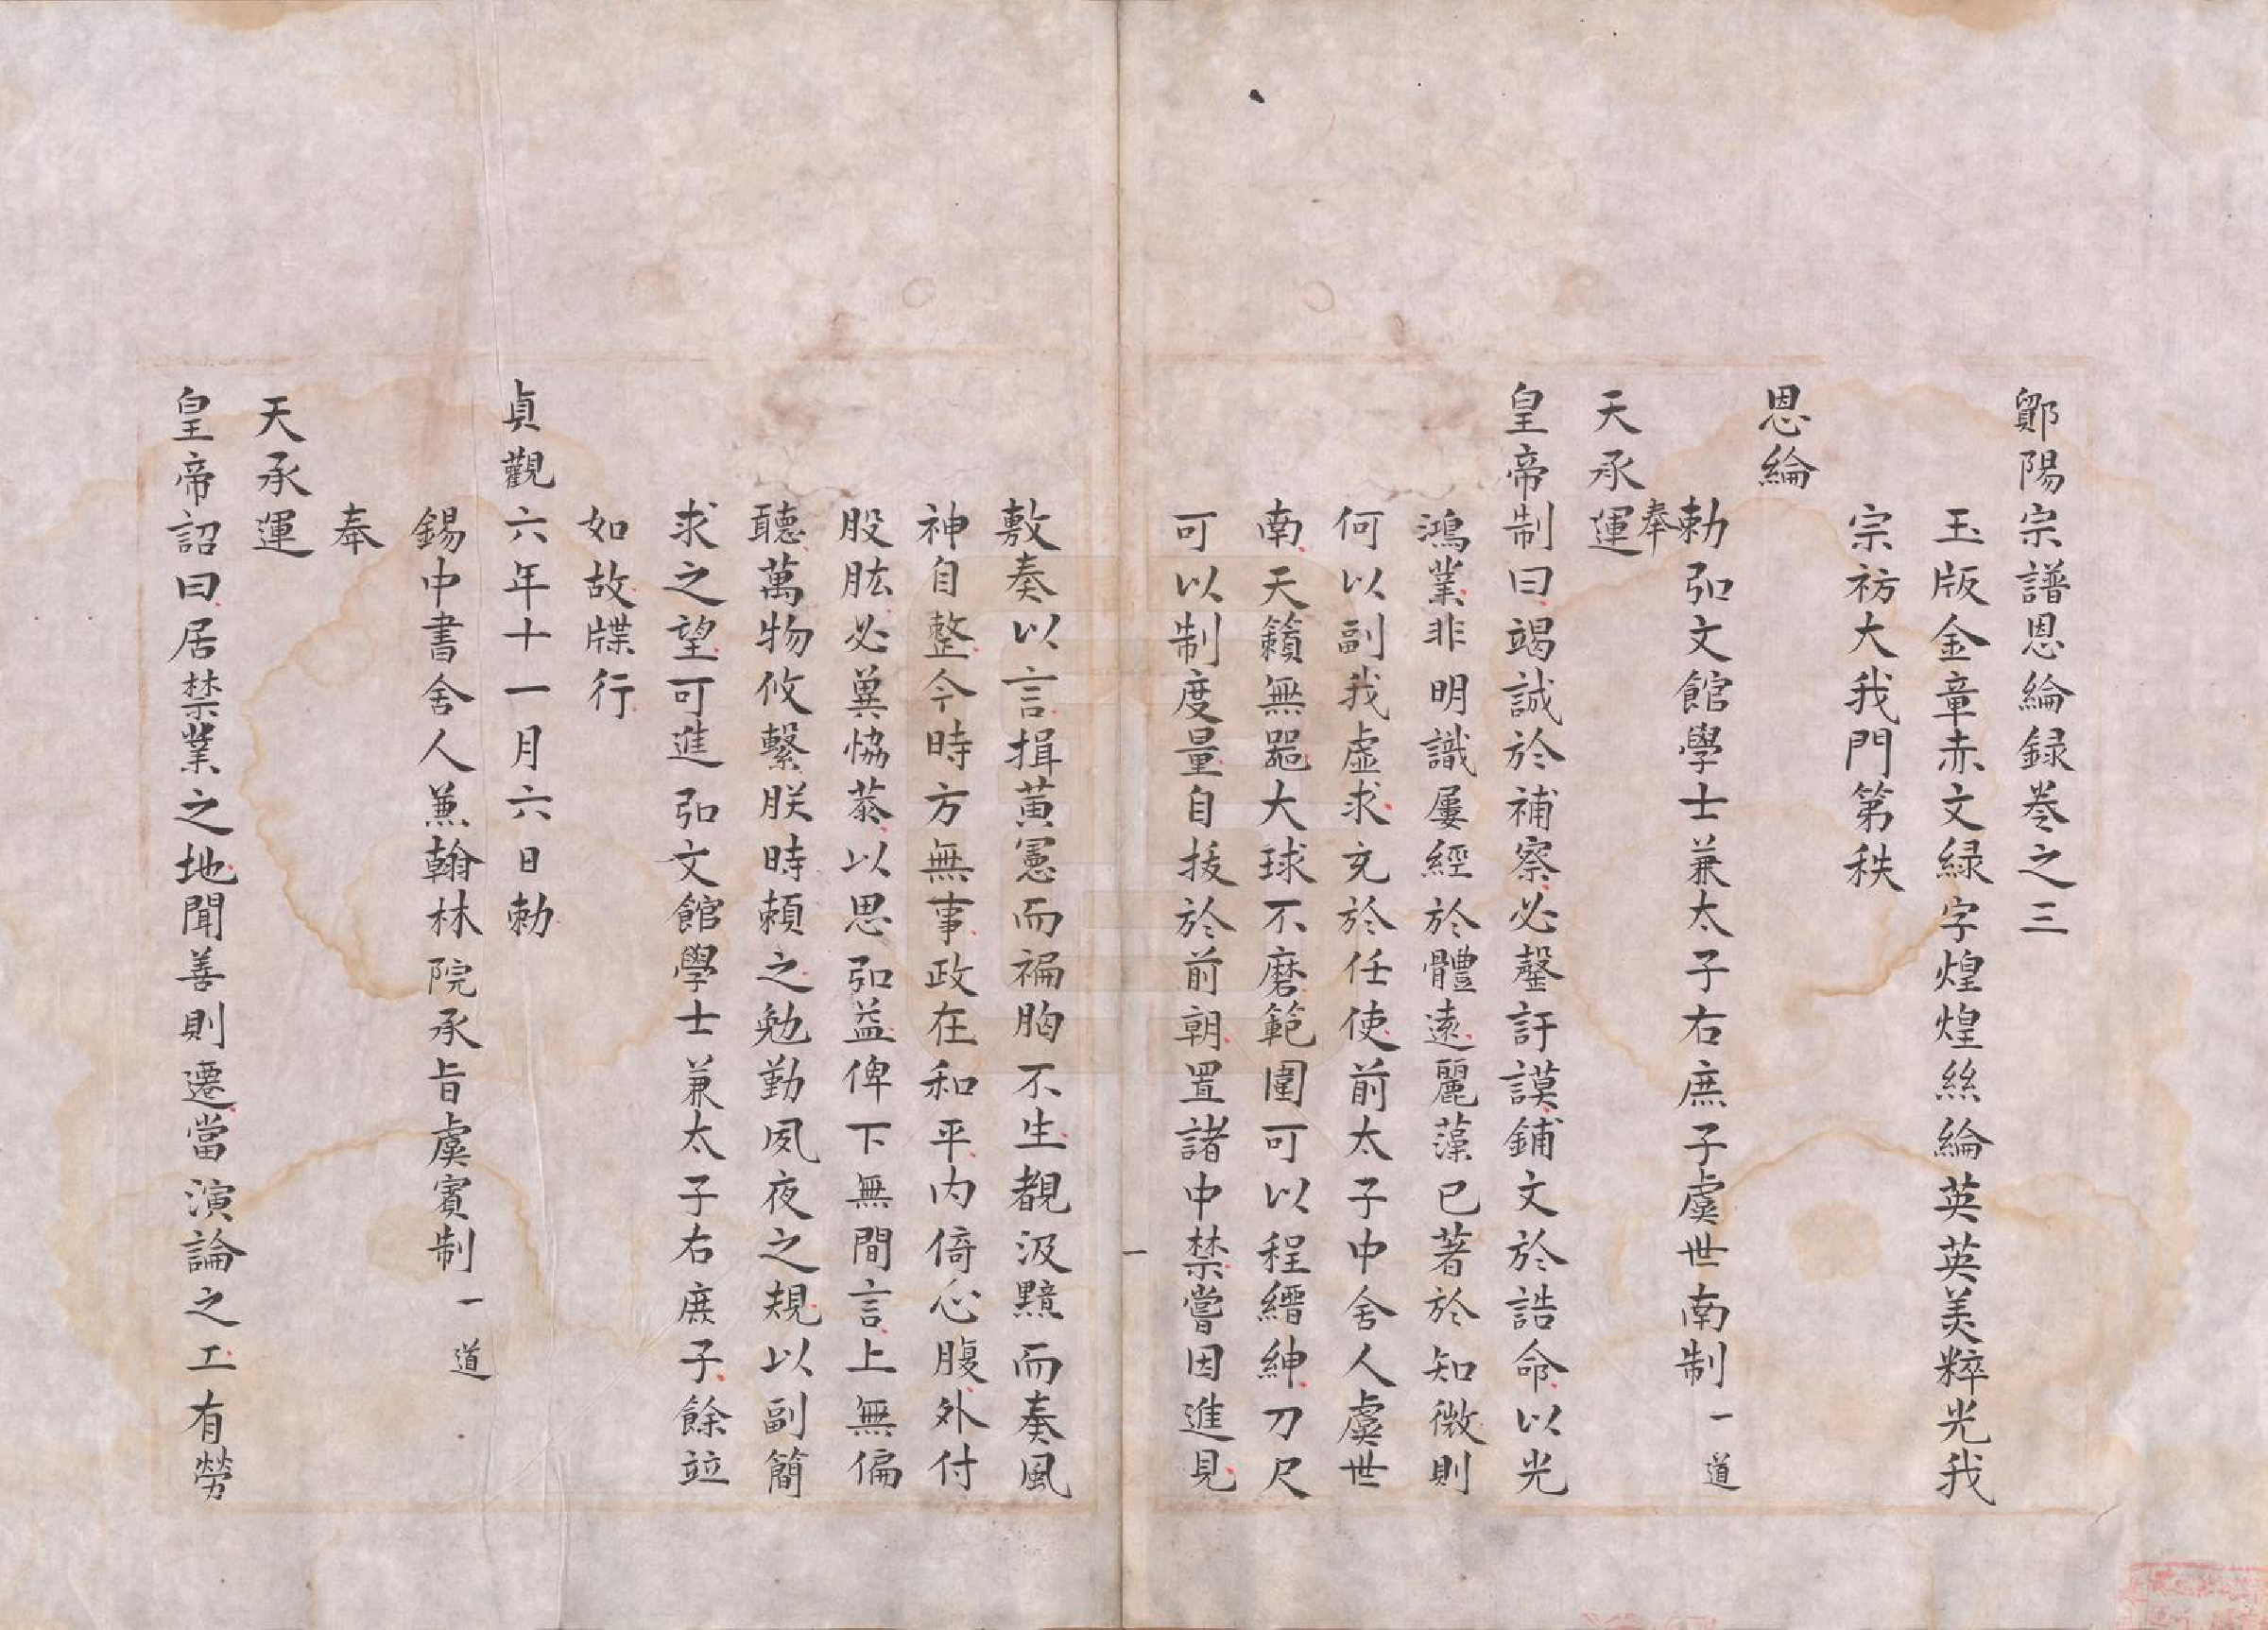 鄮陽宗譜恩綸録卷之三
玉版金章赤文緑字煌煌絲綸英英美粹光我
宗祊大我門第秩
恩綸
勅弘文館學士兼太子右庶子虞世南制一道
奉
天承運
皇帝制曰竭誠於補察必罄訏謨鋪文於誥命以光
鴻業非明識屢經於體遠麗藻已著於知微則
何以副我虛求充於任使前太子中舍人虞世
南天籟無噐大球不磨範圍可以程縉紳刀尺
可以制度量自拔於前朝置諸中禁嘗因進見
一
敷奏以言揖黃憲而褊胸不生覩汲黯而奏風
神自整今時方無事政在和平内倚心腹外付
股肱必冀恊恭以思弘益俾下無間言上無偏
聽萬物攸繫朕時頼之勉勤夙夜之規以副簡
求之望可進弘文館學士兼太子右庶子餘竝
如故牒行
貞觀六年十一月六日勅
錫中書舍人兼翰林院承旨虞賓制一道
奉
天承運
皇帝詔曰居禁業之地聞善則遷當演論之工有勞